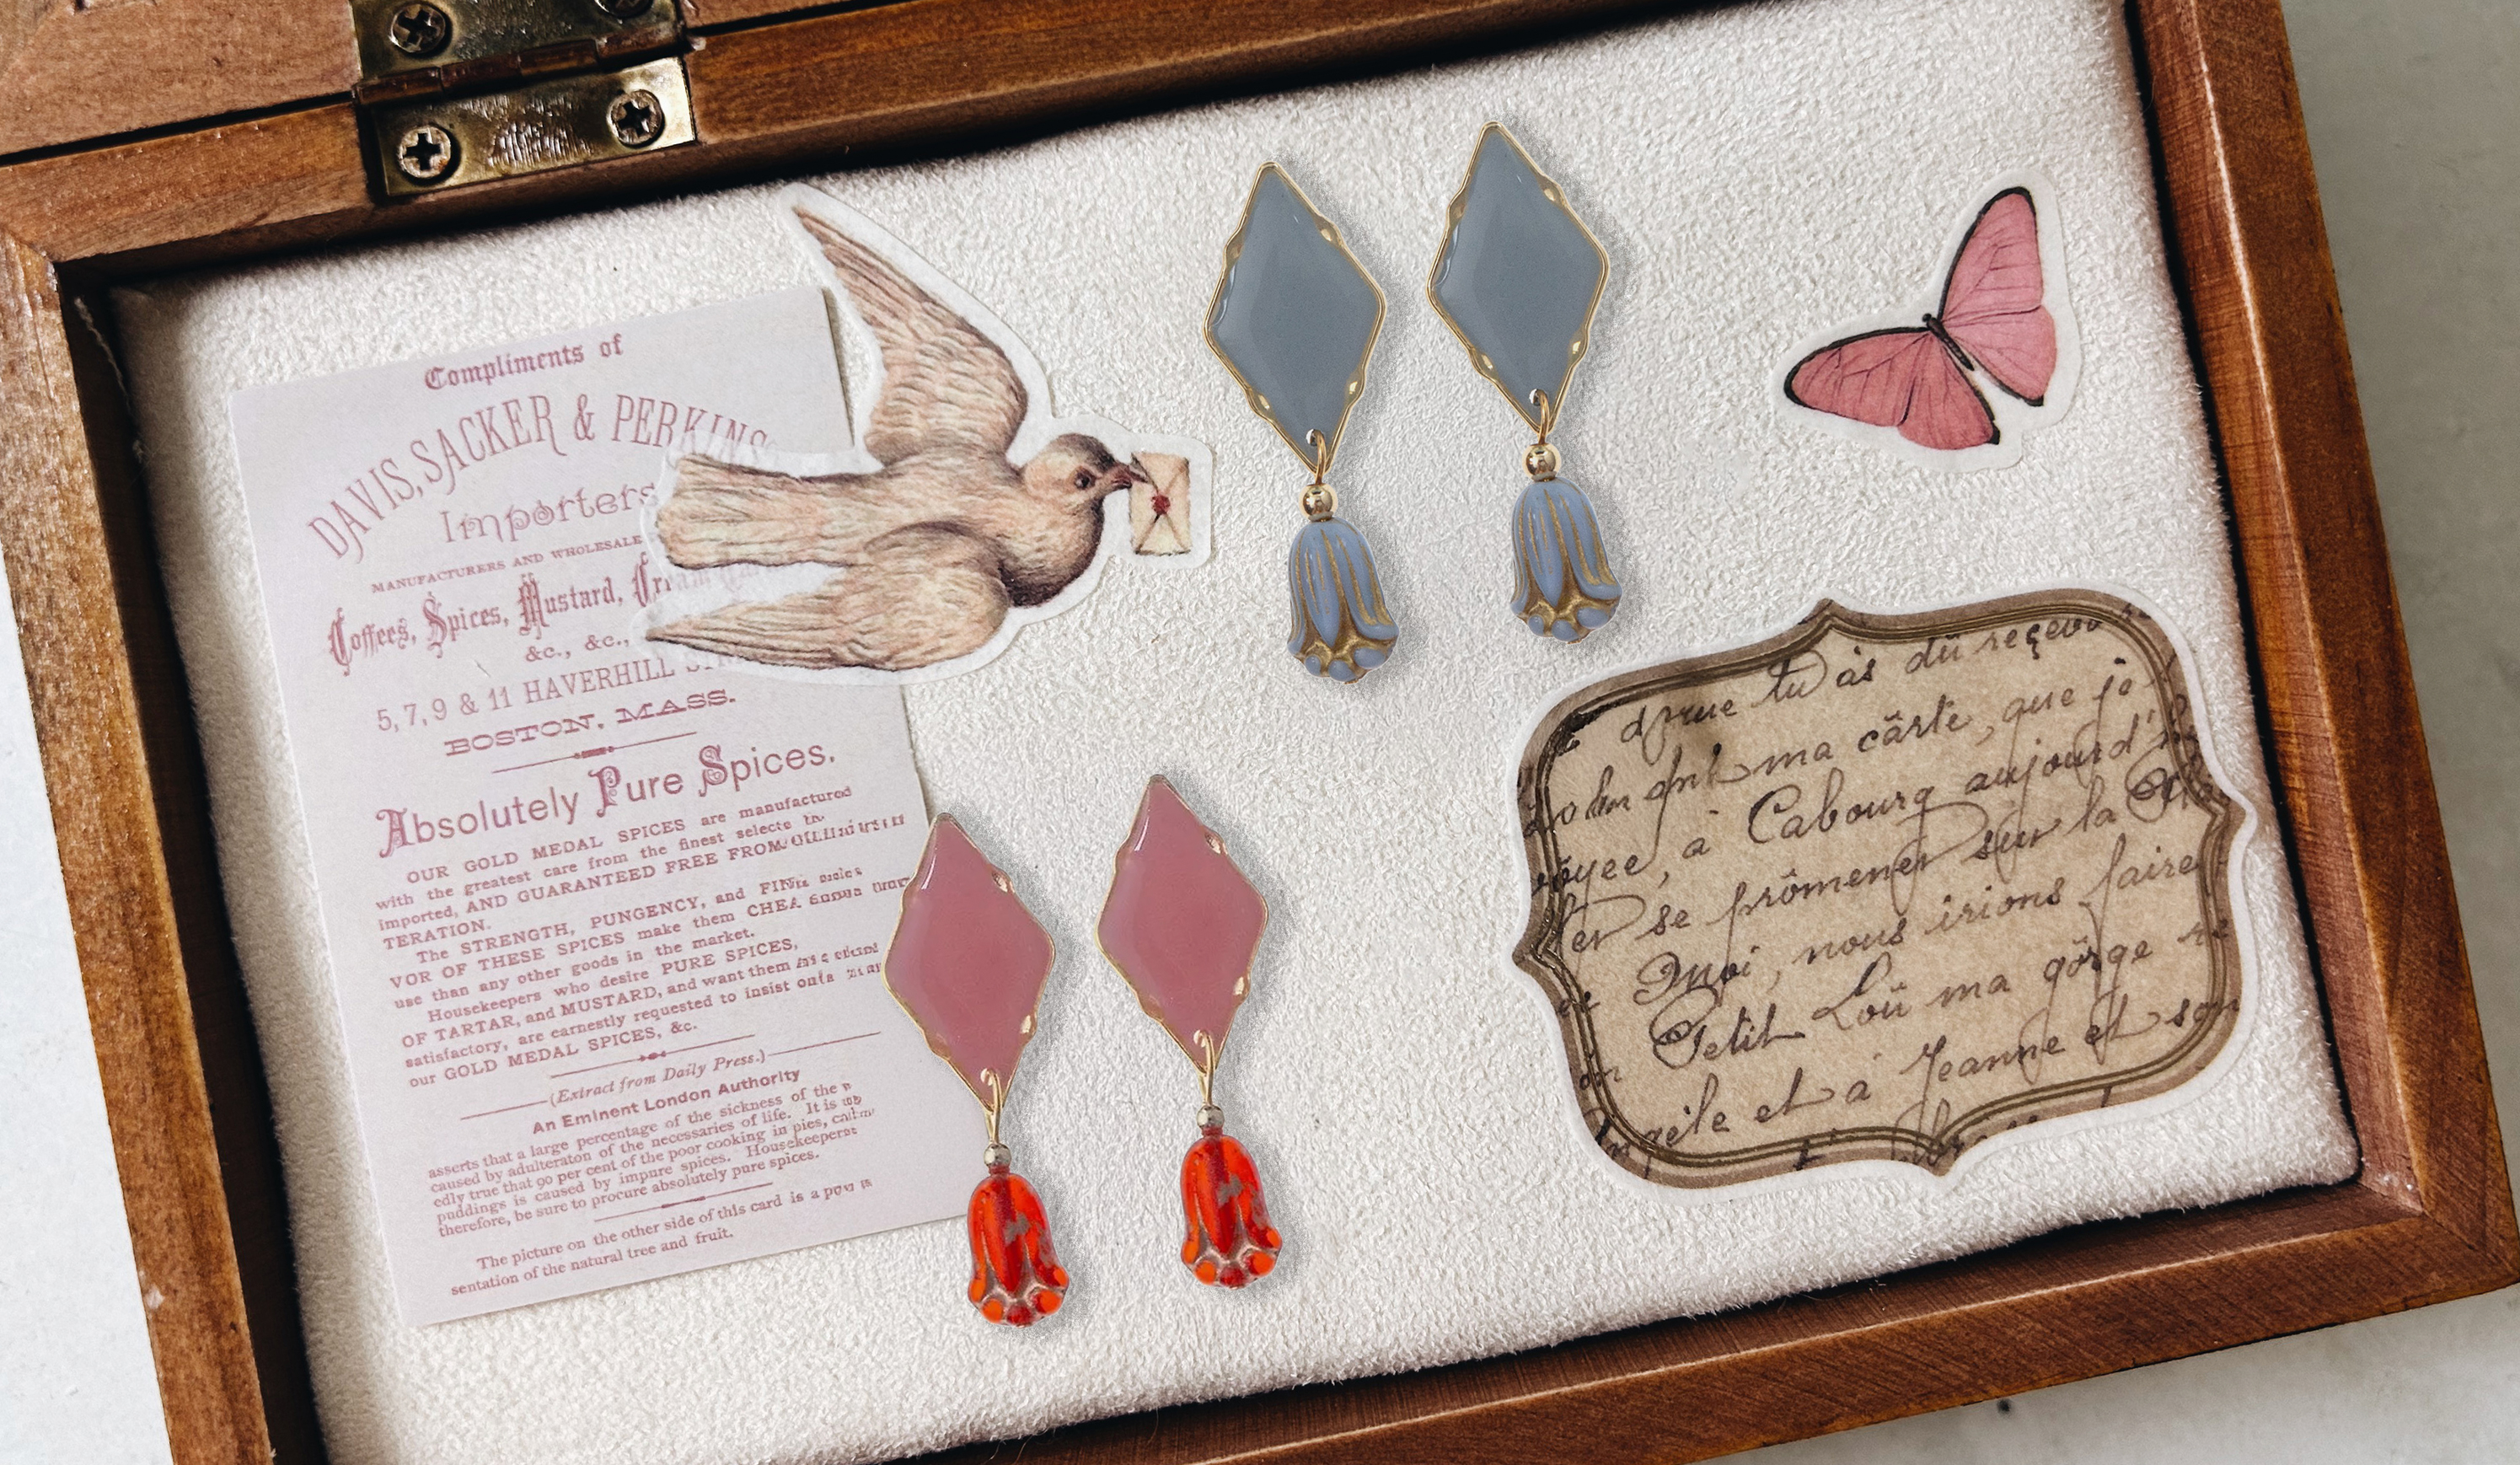 Compliments of
DAVIS, SACKER & PERKINS
Importers
MANUFACTURERS AND WHOLESALE
Coffees, Spices, Mustard, Cream
&c., &c.,
5, 7, 9 & 11 HAVERHILL
BOSTON, MASS.
Absolutely Pure Spices.
OUR GOLD MEDAL SPICES are manufactured
with the greatest care from the finest selects
imported, AND GUARANTEED FREE FROM
TERATION.
The STRENGTH, PUNGENCY, and
VOR OF THESE SPICES make them
use than any other goods in the market.
Housekeepers who desire PURE SPICES,
OF TARTAR, and MUSTARD, and want them
satisfactory, are earnestly requested to insist
our GOLD MEDAL SPICES, &c.
(Extract from Daily Press.)
An Eminent London Authority
asserts that a large percentage of the sickness of the
caused by adulteraton of the necessaries of life. It is
edly true that 90 per cent of the poor cooking in pies,
puddings is caused by impure spices. Housekeepers
therefore, be sure to procure absolutely pure spices.
The picture on the other side of this card is a
sentation of the natural tree and fruit.
que tu as dû
ma cârte, que je
à Cabourg aujourd'
se prômener sur la
Quoi, nous irions faire
Petit Loü ma gôrge
et à Jeanne et son